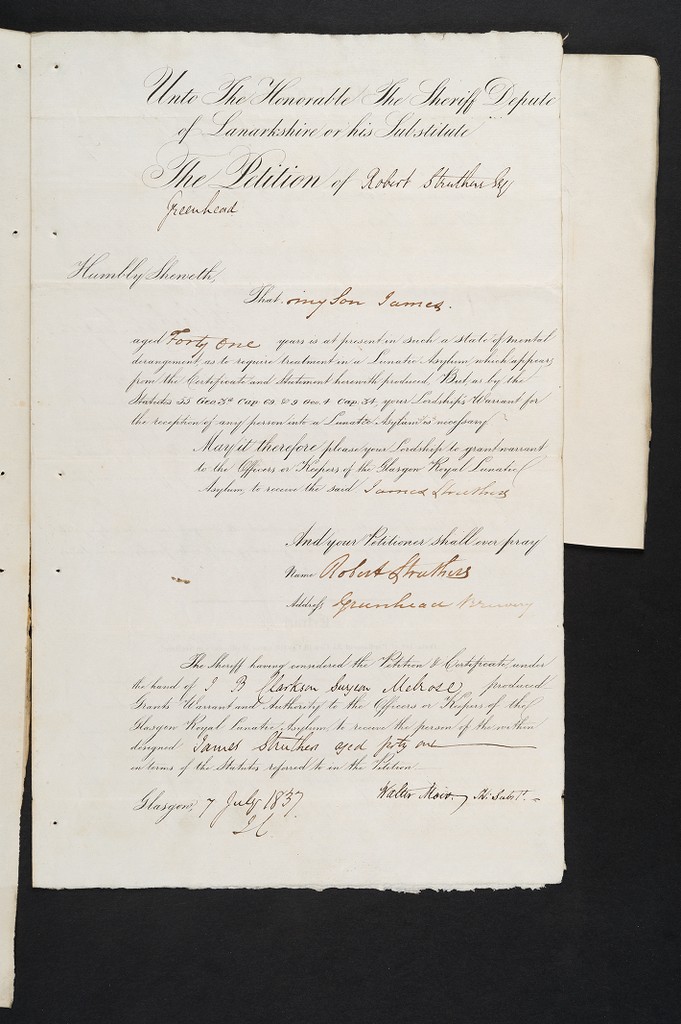 Unto The Honorable The Sheriff Depute
of Lanarkshire or his Substitute
The Petition of Robert Struthers Esq
Greenhead
Humbly Sheweth,
That my Son James.
aged Forty one years is at present in such a state of mental
derangement as to require treatment in a Lunatic Asylum, which appears
from the Certificate and Statement herewith produced. But as by the
Statutes 55 Geo. 3d Cap. 69. & 9 Geo. 4 Cap. 34. your Lordship's Warrant for
the reception of any person into a Lunatic Asylum is necessary
May it therefore please your Lordship to grant warrant
to the Officers or Keepers of the Glasgow Royal Lunatic
Asylum, to receive the said James Struthers
And your Petitioner shall ever pray
Name Robert Struthers
Address Greenhead Brewery
The Sheriff having considered the Petition & Certificate, under
the hand of J B Clarkson Surgeon Melrose, produced
Grants Warrant and Authority to the Officers or Keepers of the
Glasgow Royal Lunatic Asylum to receive the person of the within
designed James Struthers aged forty one
in terms of the Statutes referred to in the Petition
Glasgow, 7 July 1837 Walter Moir, Sh: Subst.